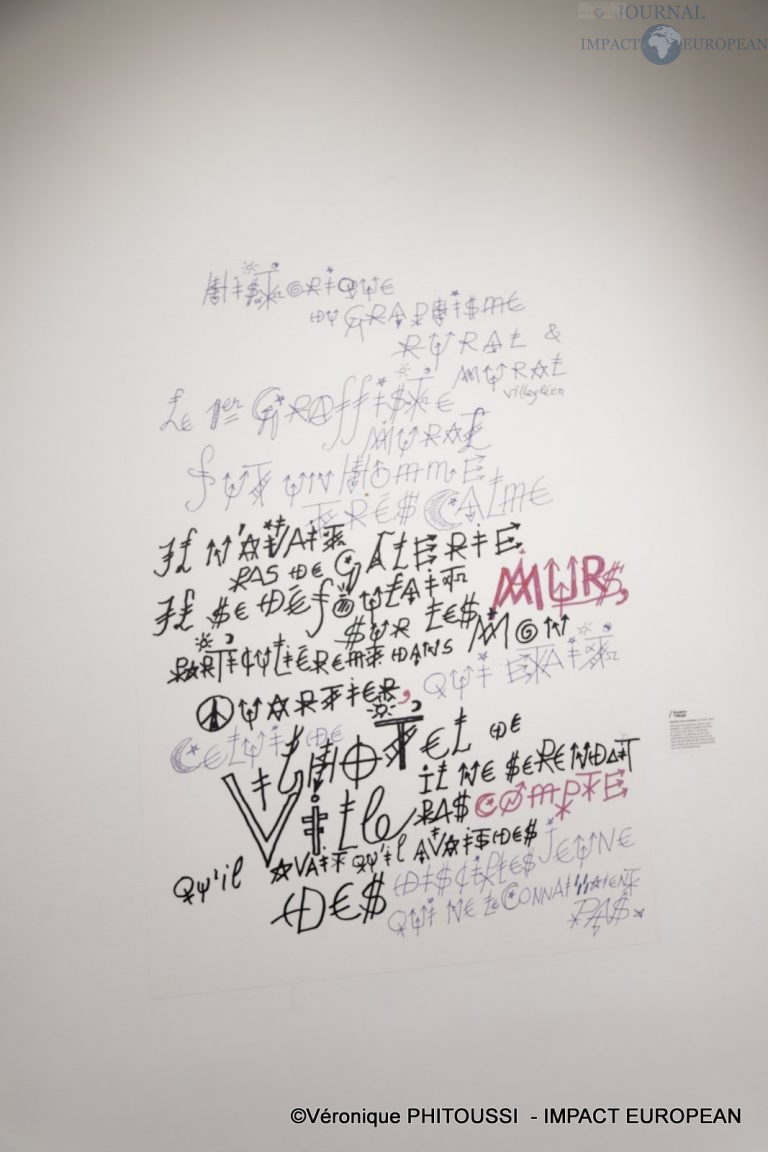 JOURNAL
IMPACT EUROPEAN
HISTORIQUE
DU GRAPHISME
RURAL &
MURAL
villegléen
LE 1er GRAffISTE
MURAL
fUT UN HOMME
TRÉS CALME
IL N'AVAIT
PAS DE GALERIE
IL SE DÉfOULAIT
SUR LES MURS,
PARTICULIÉREMENT DANS MON
QUARTIER, QUI ETAIT
CELUI DE
L'HOTEL DE
VilLe
iL NE SE RENDAIT
PAS COMPTE
Qu'il AVAIT Qu'il AVAIT DES
DES DISCIPLES JEUNE
QUI NE LE CONNAISSAIENT
PAS.
©Véronique PHITOUSSI - IMPACT EUROPEAN